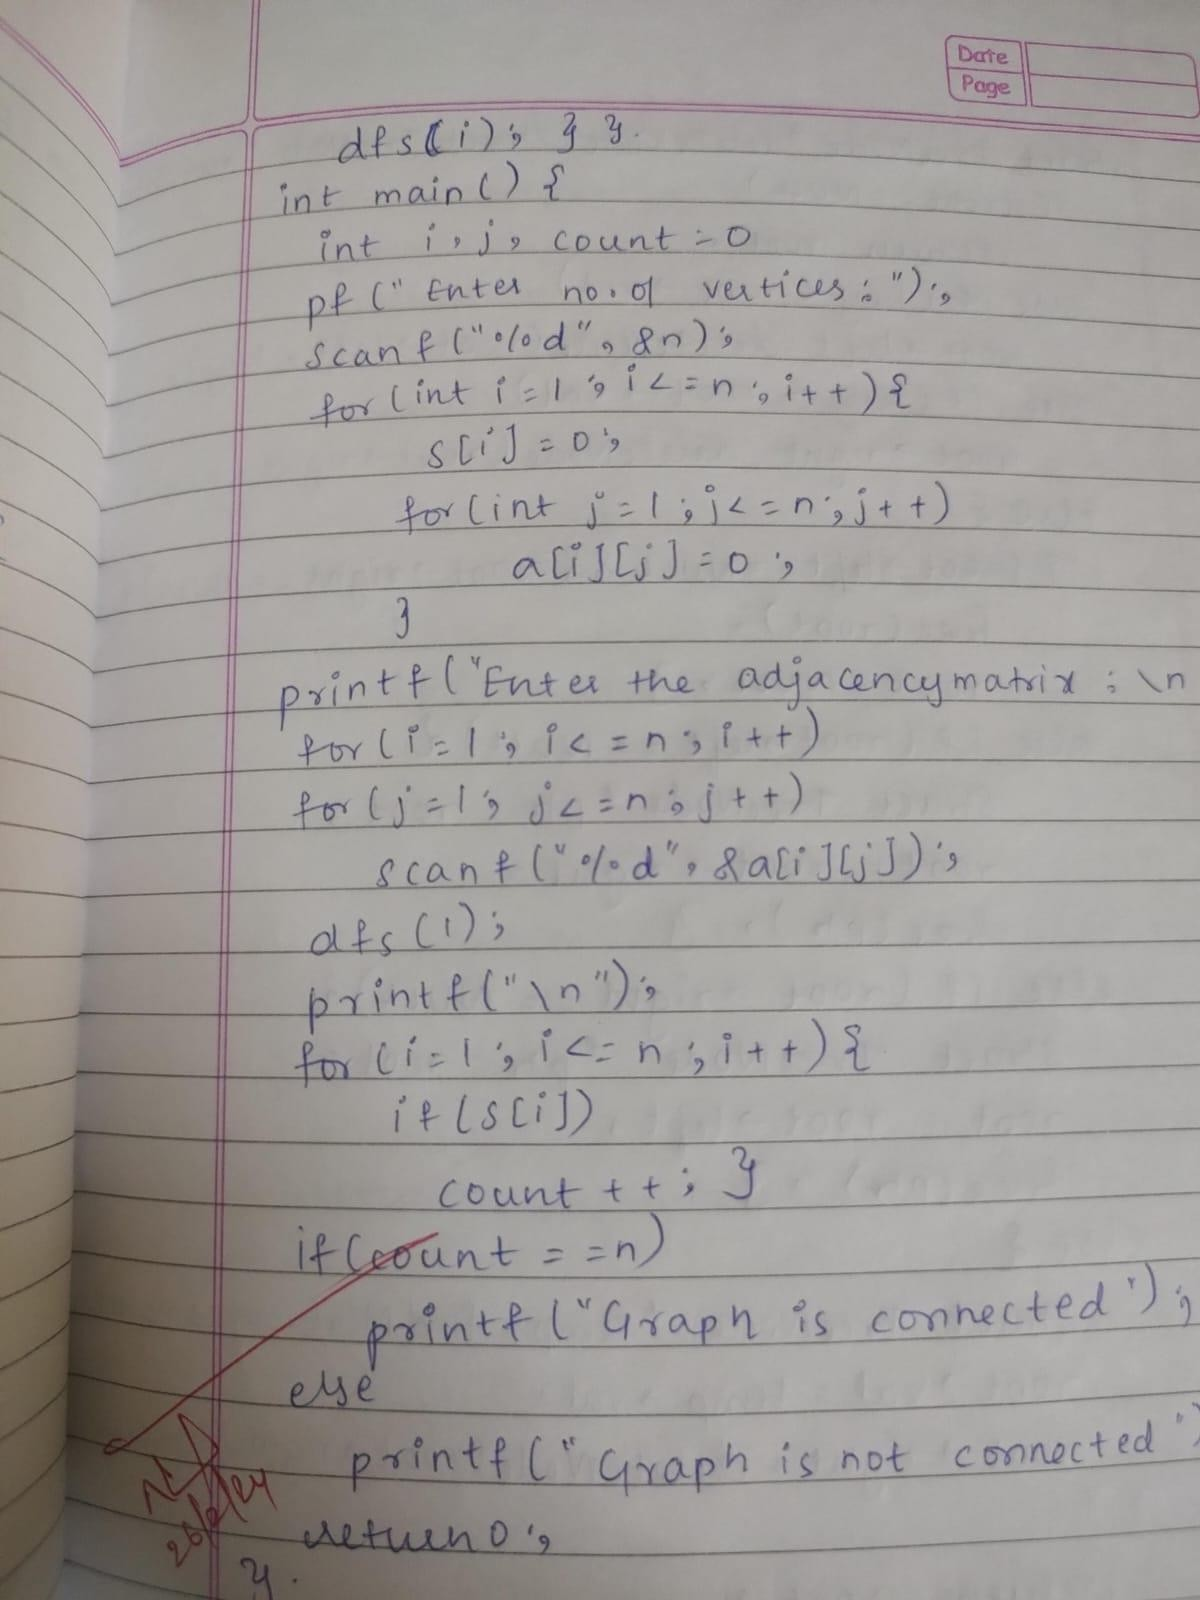 Date
Page
dfs(i); } }.
int main() {
int i, j, count = 0
pf (" Enter no. of vertices : ");
scanf ("%d", &n);
for (int i = 1; i <= n; i++) {
s[i] = 0;
for (int j = 1; j <= n; j++)
a[i][j] = 0;
}
printf ("Enter the adjacency matrix : \n
for (i = 1; i <= n; i++)
for (j = 1; j <= n; j++)
scanf ("%d", &a[i][j]);
dfs (1);
printf ("\n");
for (i = 1; i <= n; i++) {
if (s[i])
count ++; }
if (count = = n)
printf ("Graph is connected");
else
printf (" Graph is not connected ")
return 0;
}.